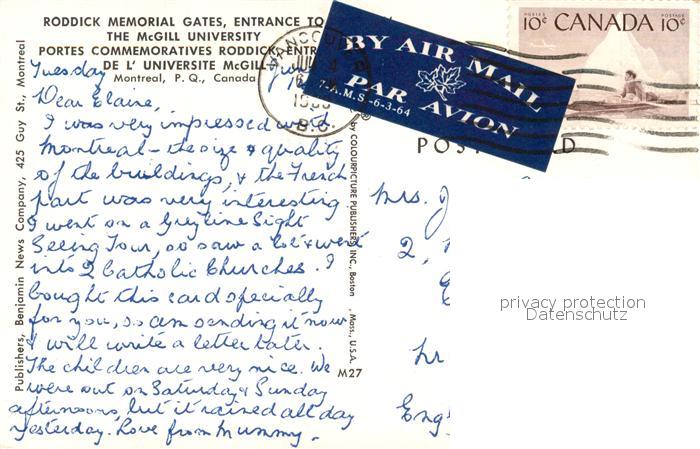 RODDICK MEMORIAL GATES, ENTRANCE TO
THE McGILL UNIVERSITY
PORTES COMMEMORATIVES RODDICK, ENTR
DE L' UNIVERSITE McGILL
Montreal, P. Q., Canada
Tuesday
Dear Elaine,
I was very impressed with
Montreal - the size & quality
of the buildings, & the French
part was very interesting.
I went on a Greyline Sight
Seeing Tour, so saw a lot & went
into 2 Catholic Churches. I
bought this card specially
for you, so am sending it now
& will write a letter later.
The children are very nice. We
were out on Saturday & Sunday
afternoons, but it rained all day
yesterday. Love from Mummy.
Publishers, Benjamin News Company, 425 Guy St., Montreal
by COLOURPICTURE PUBLISHERS, INC., Boston, Mass., U.S.A.
M27
VANCOUVER
B.C.
BY AIR MAIL
PAR AVION
7-A.M.S-6-3-64
POSTES POSTAGE
10¢ CANADA 10¢
POS D
Mrs. J
2,
Eng
privacy protection
Datenschutz